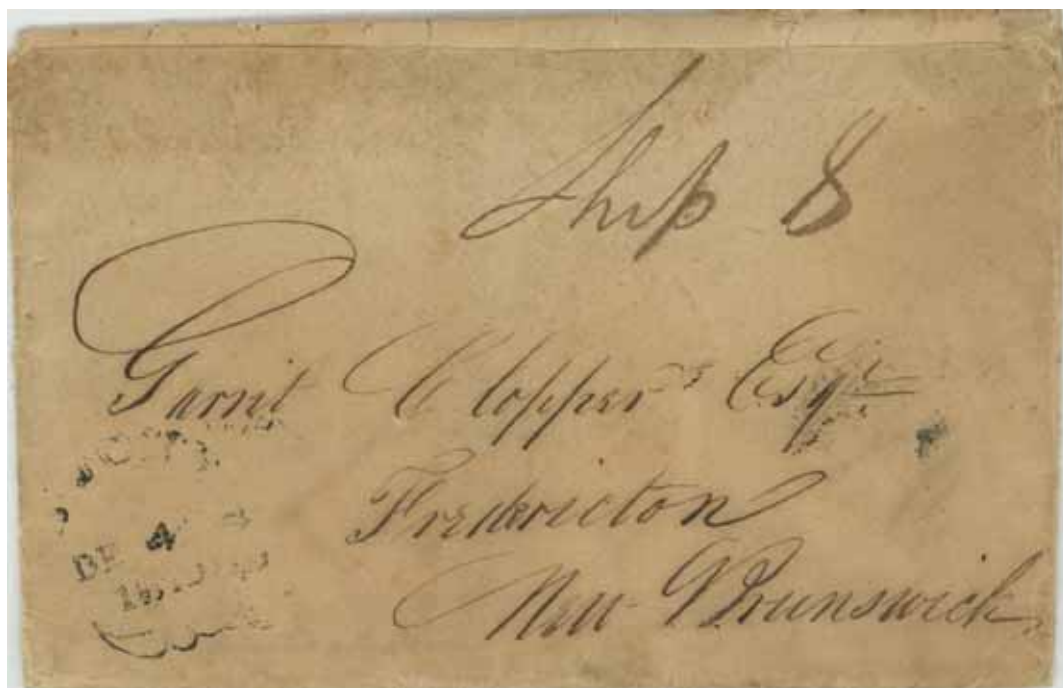 Ship 8
Garrit Clopper Esqr
Fredericton
New Brunswick
DE 4